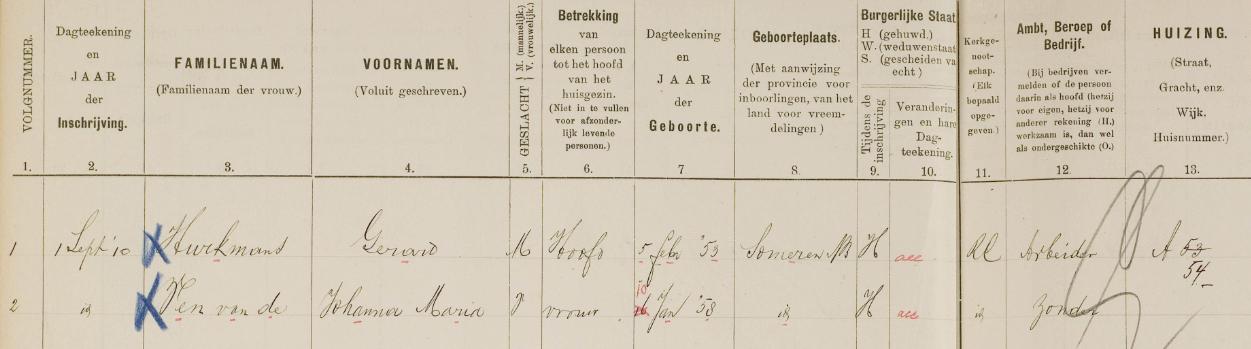 VOLGNUMMER.
1.
Dagteekening
en
JAAR
der
Inschrijving.
2.
FAMILIENAAM.
(Familienaam der vrouw.)
3.
VOORNAMEN.
(Voluit geschreven.)
4.
GESLACHT { M. (mannelijk.) V. (vrouwelijk.)
5.
Betrekking
van
elken persoon
tot het hoofd
van het
huisgezin.
(Niet in te vullen
voor afzonder-
lijk levende
personen.)
6.
Dagteekening
en
JAAR
der
Geboorte.
7
Geboorteplaats.
(Met aanwijzing
der provincie voor
inboorlingen, van het
land voor vreem-
delingen )
8.
Burgerlijke Staat
H (gehuwd.)
W. (weduwenstaat
S. (gescheiden va
echt )
Tijdens de
inschrijving
9.
Veranderin-
gen en hare
Dag-
teekening.
10.
Kerkge-
noot-
schap.
(Elk
bepaald
opge-
geven.)
11.
Ambt, Beroep of
Bedrijf.
(Bij bedrijven ver-
melden of de persoon
daarin als hoofd (hetzij
voor eigen, hetzij voor
anderer rekening (H.)
werkzaam is, dan wel
als ondergeschikte (O.)
12.
HUIZING.
(Straat,
Gracht, enz.
Wijk.
Huisnummer.)
13.
1 1 Sept '10 Hurkmans Gerard M Hoofd 5 febr '53 Someren NB H acc RC Arbeider A 53
54
2 id Ven van de Johanna Maria V vrouw 10 Jan '58 id H acc id zonder